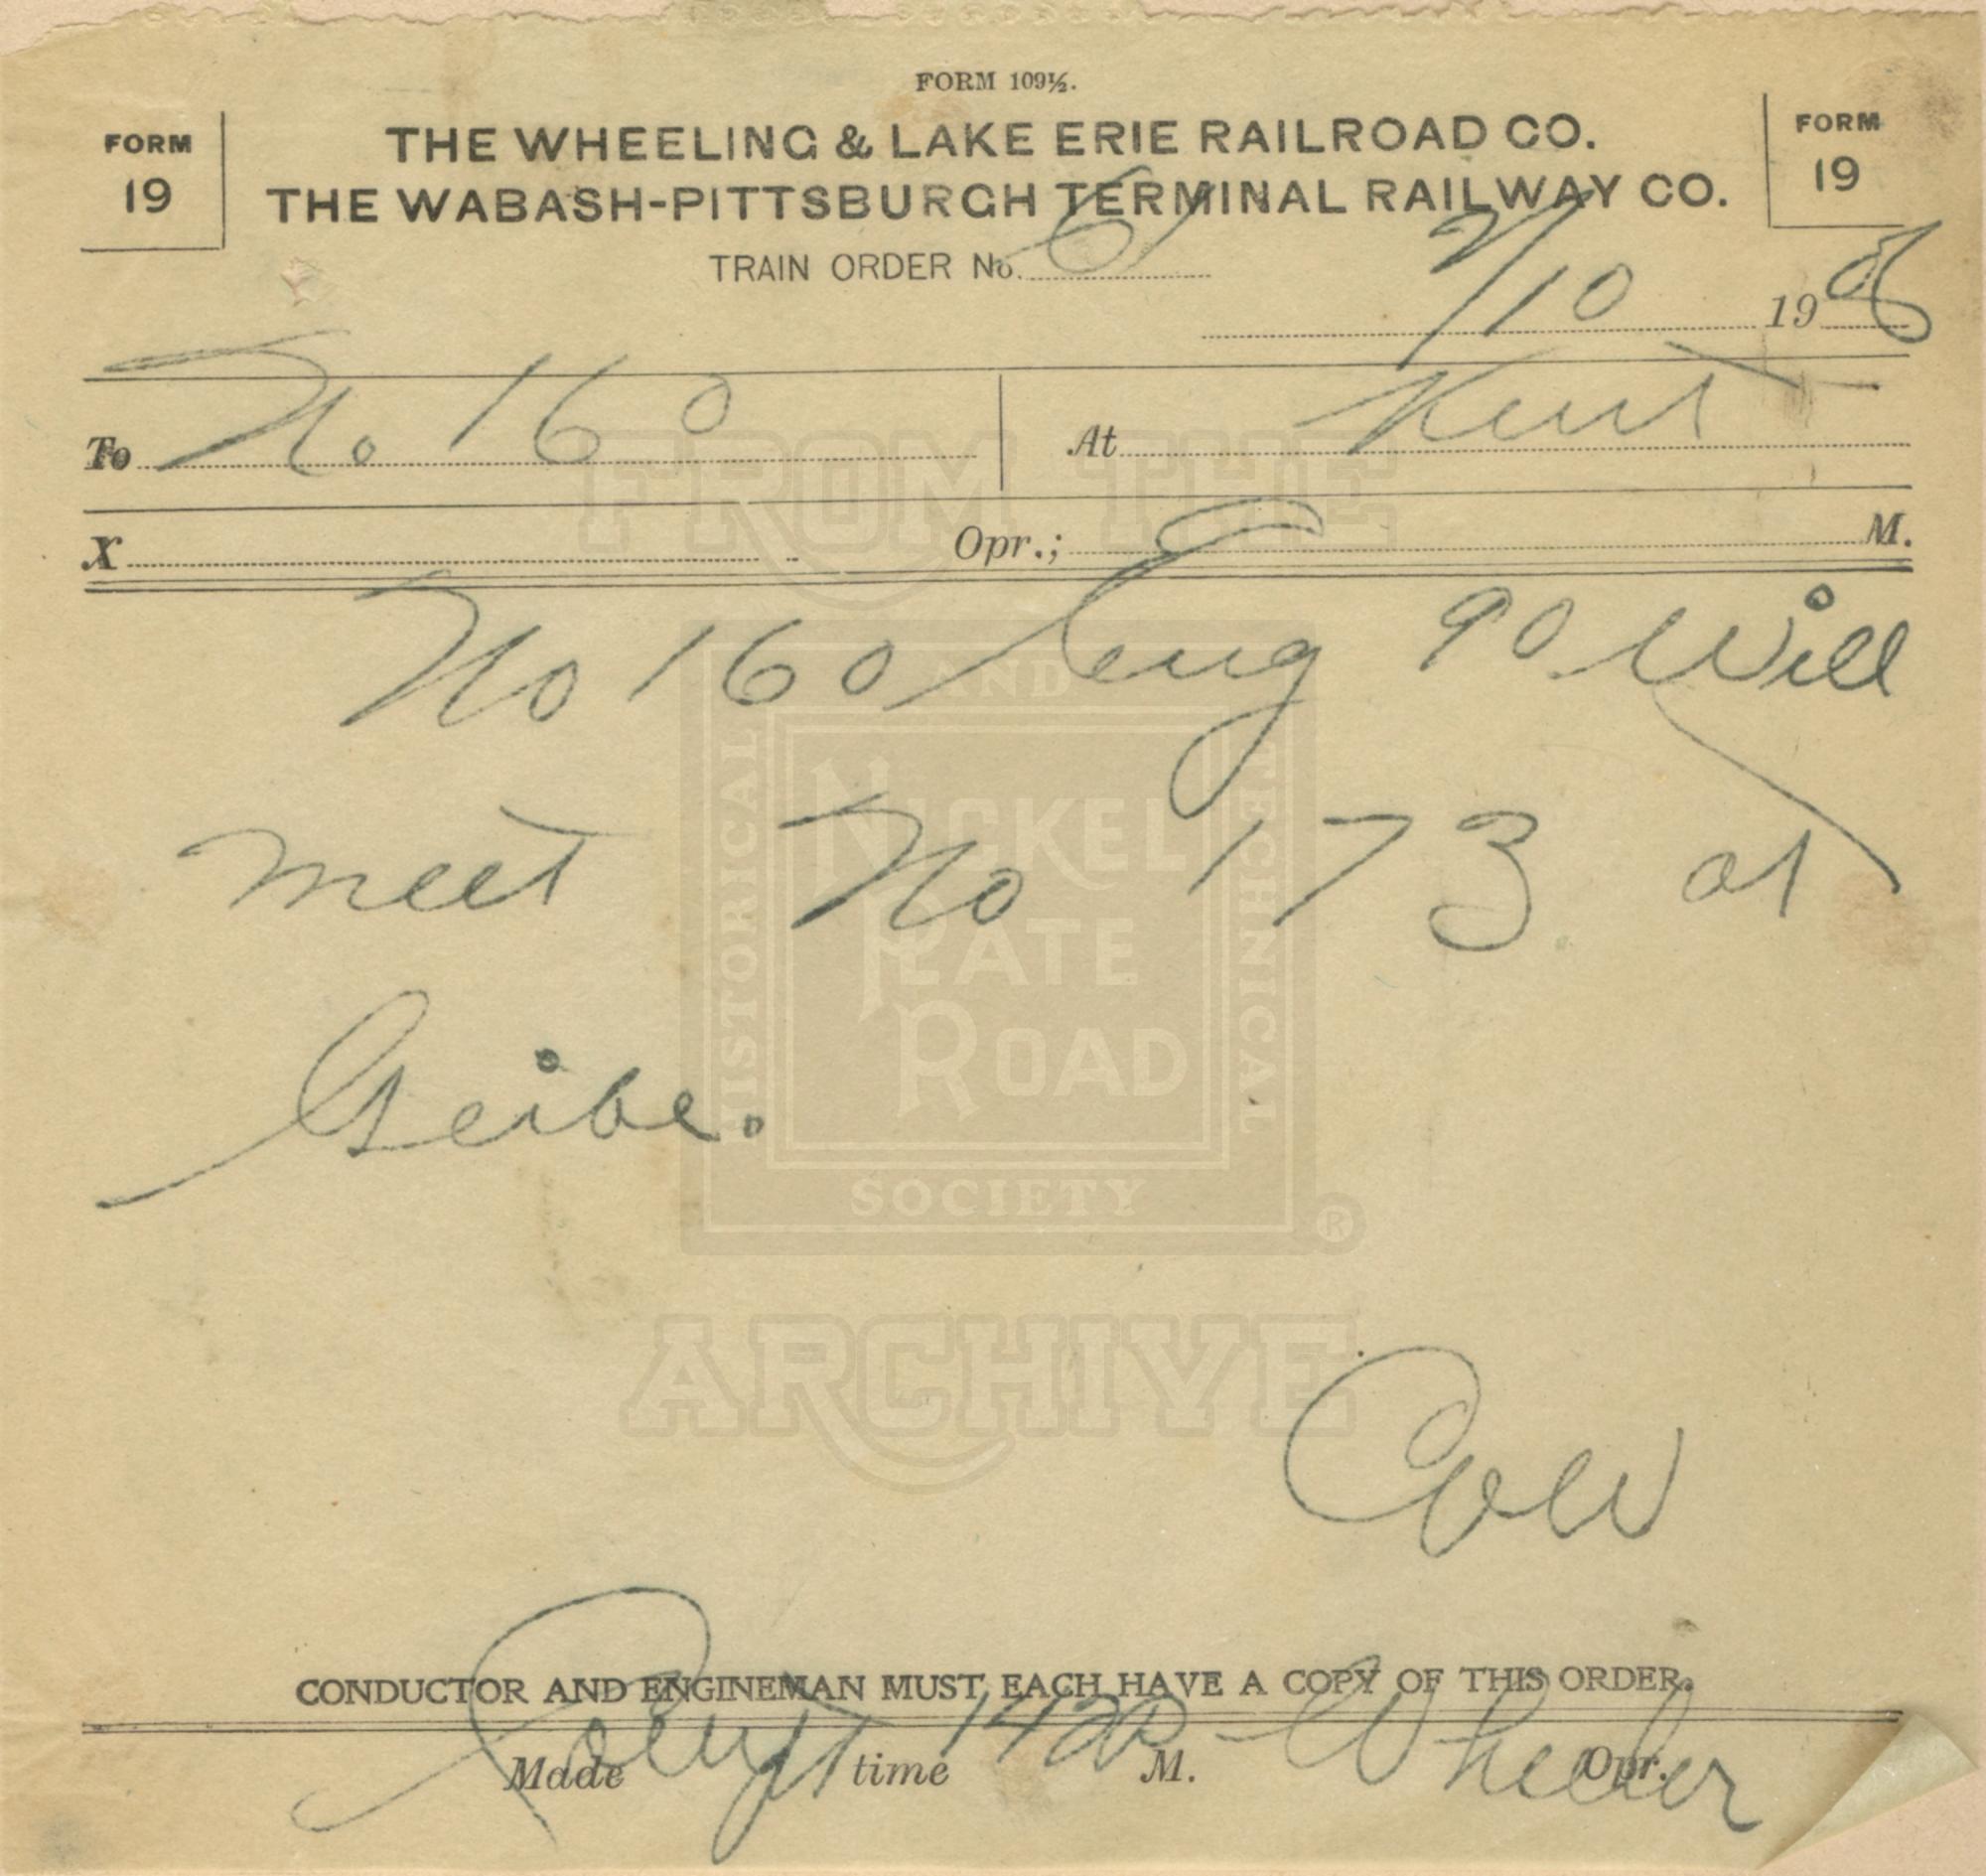 FORM 109½.
FORM 19
THE WHEELING & LAKE ERIE RAILROAD CO.
FORM 19
THE WABASH-PITTSBURGH TERMINAL RAILWAY CO.
TRAIN ORDER No. 61
7/10 1908
To No 160 At Kent
X Opr.; M.
No 160 Eng 90 will
meet No 173 at
Geibe.
CONDUCTOR AND ENGINEMAN MUST EACH HAVE A COPY OF THIS ORDER.
Made time 142P M. Wheeler Opr.
FROM THE
HISTORICAL AND TECHNICAL
NICKEL
PLATE
ROAD
SOCIETY ®
ARCHIVE